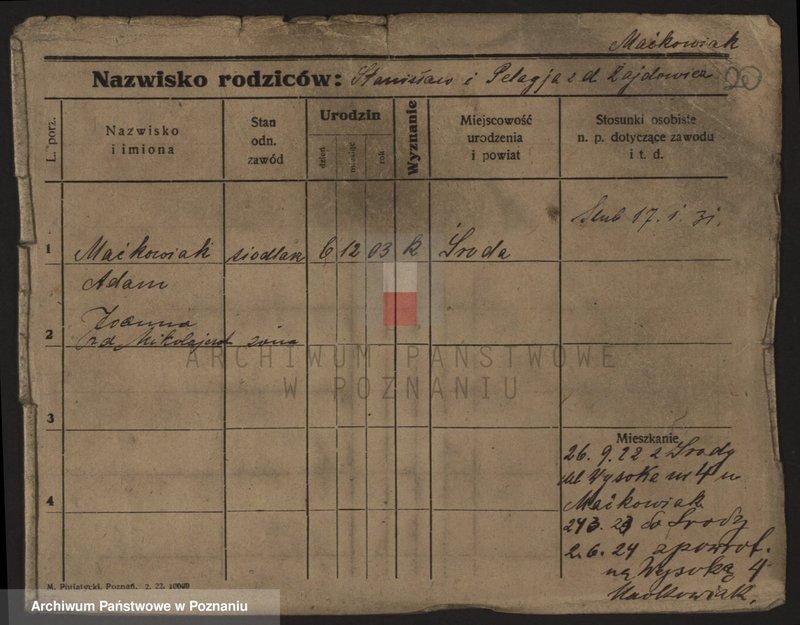 Maćkowiak
Nazwisko rodziców: Stanisław i Pelagja z d. Zajdowicz
20
L. porz.
Nazwisko
i imiona
Stan
odn.
zawód
Urodzin
dzień
miesiąc
rok
Wyznanie
Miejscowość
urodzenia
i powiat
Stosunki osobiste
n. p. dotyczące zawodu
i t. d.
Ślub 17. 1. 31.
1 Maćkowiak siodlarz 6 12 03 k Środa
Adam
Joanna
2 z d. żona
ARCHIWUM PAŃSTWOWE
W POZNANIU
3
Mieszkanie
26. 9. 22 z Środy
ul Wysoka nr 4 u
4 Maćkowiak
23 do Środy
2. 6. 24 a powrot.
na Wysoką 4
Maćkowiak.
M. Putiatycki, Poznań. 2. 22. 10000
Archiwum Państwowe w Poznaniu